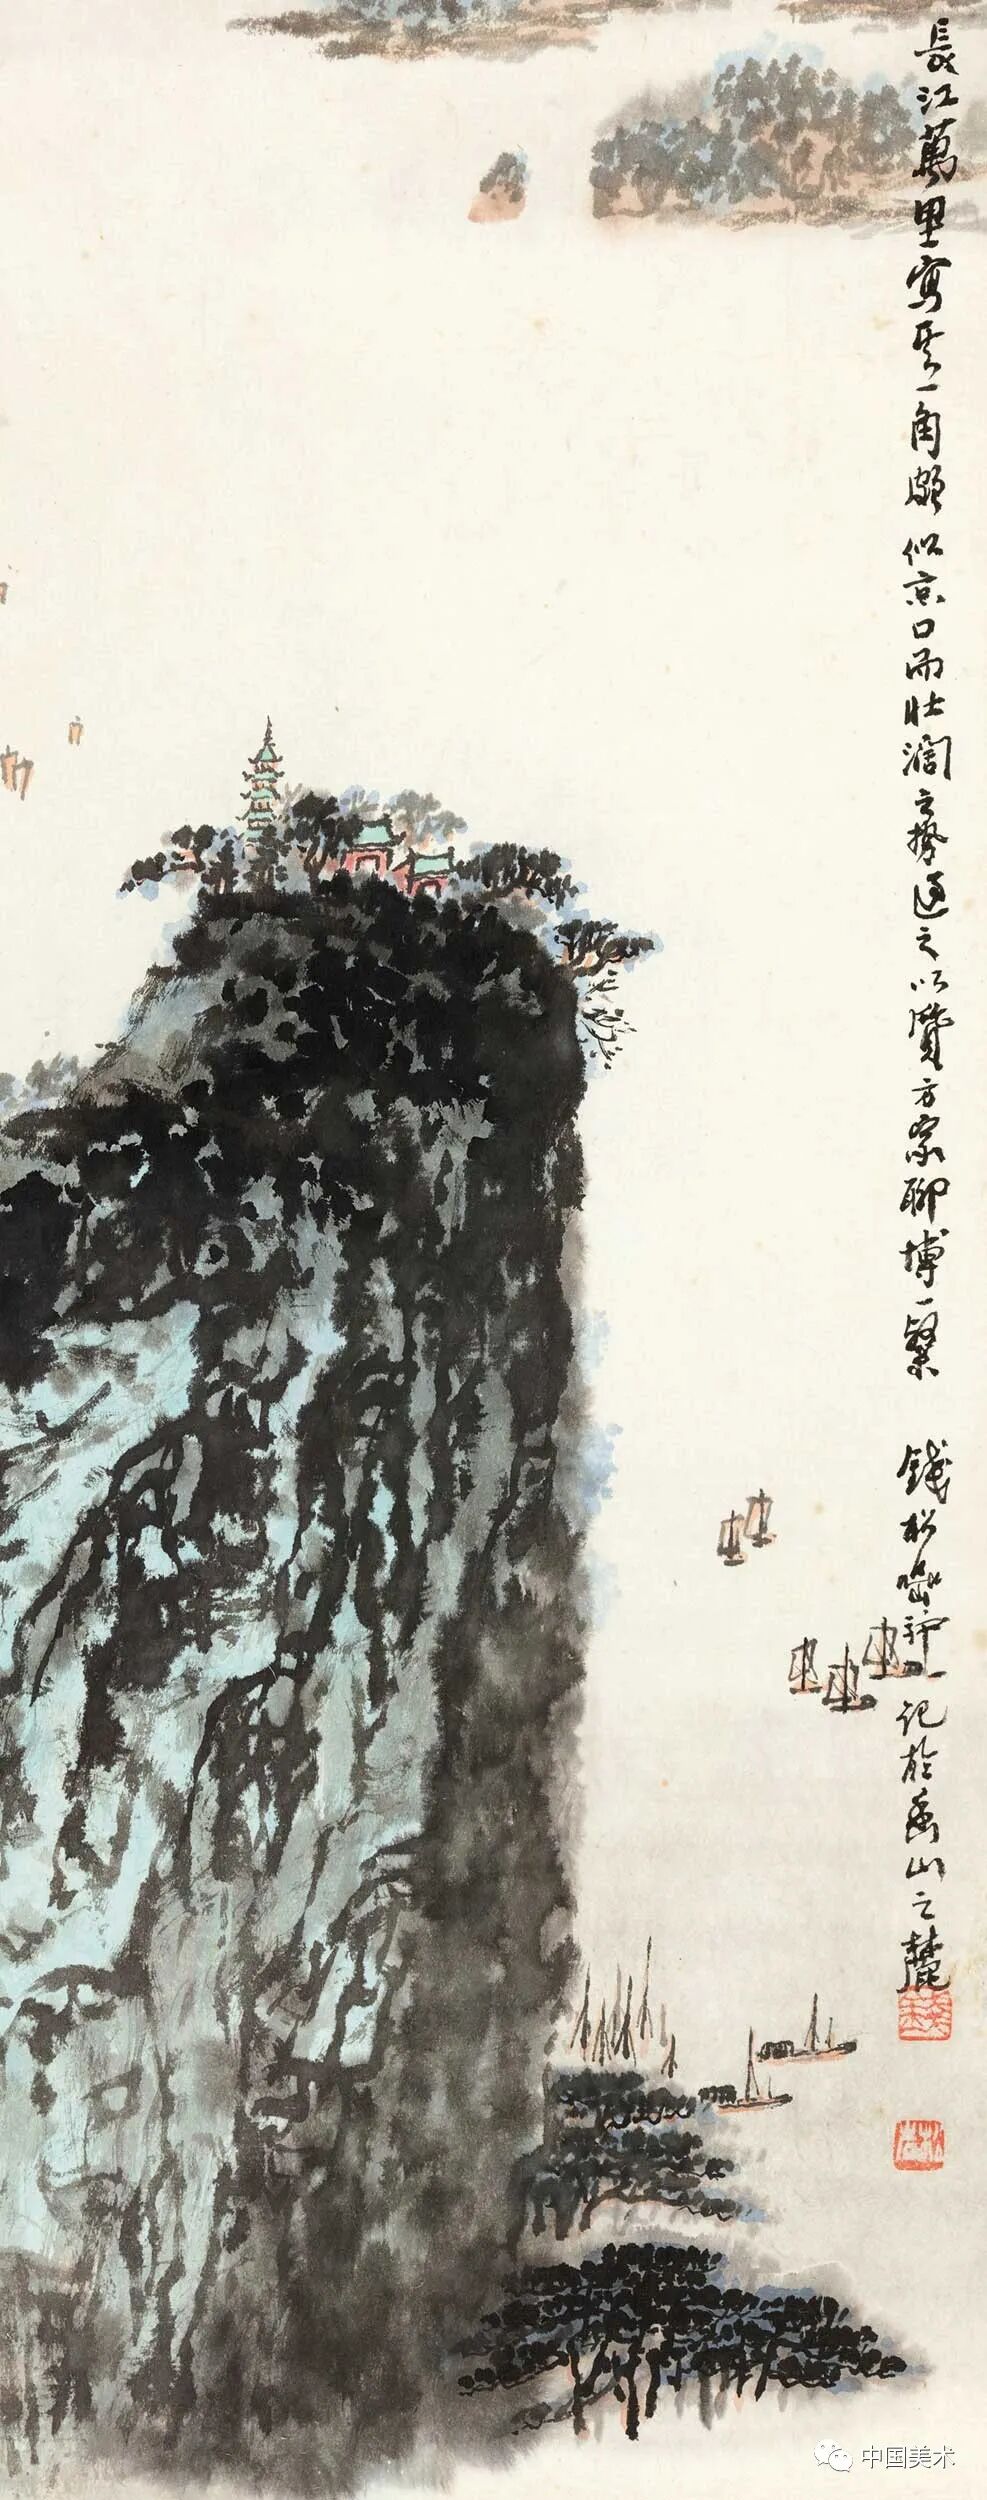 長江萬里寫其一角頗似京口而壯濶之勢過之以質方家聊博一粲 錢松喦 記於 山之麓
中国美术